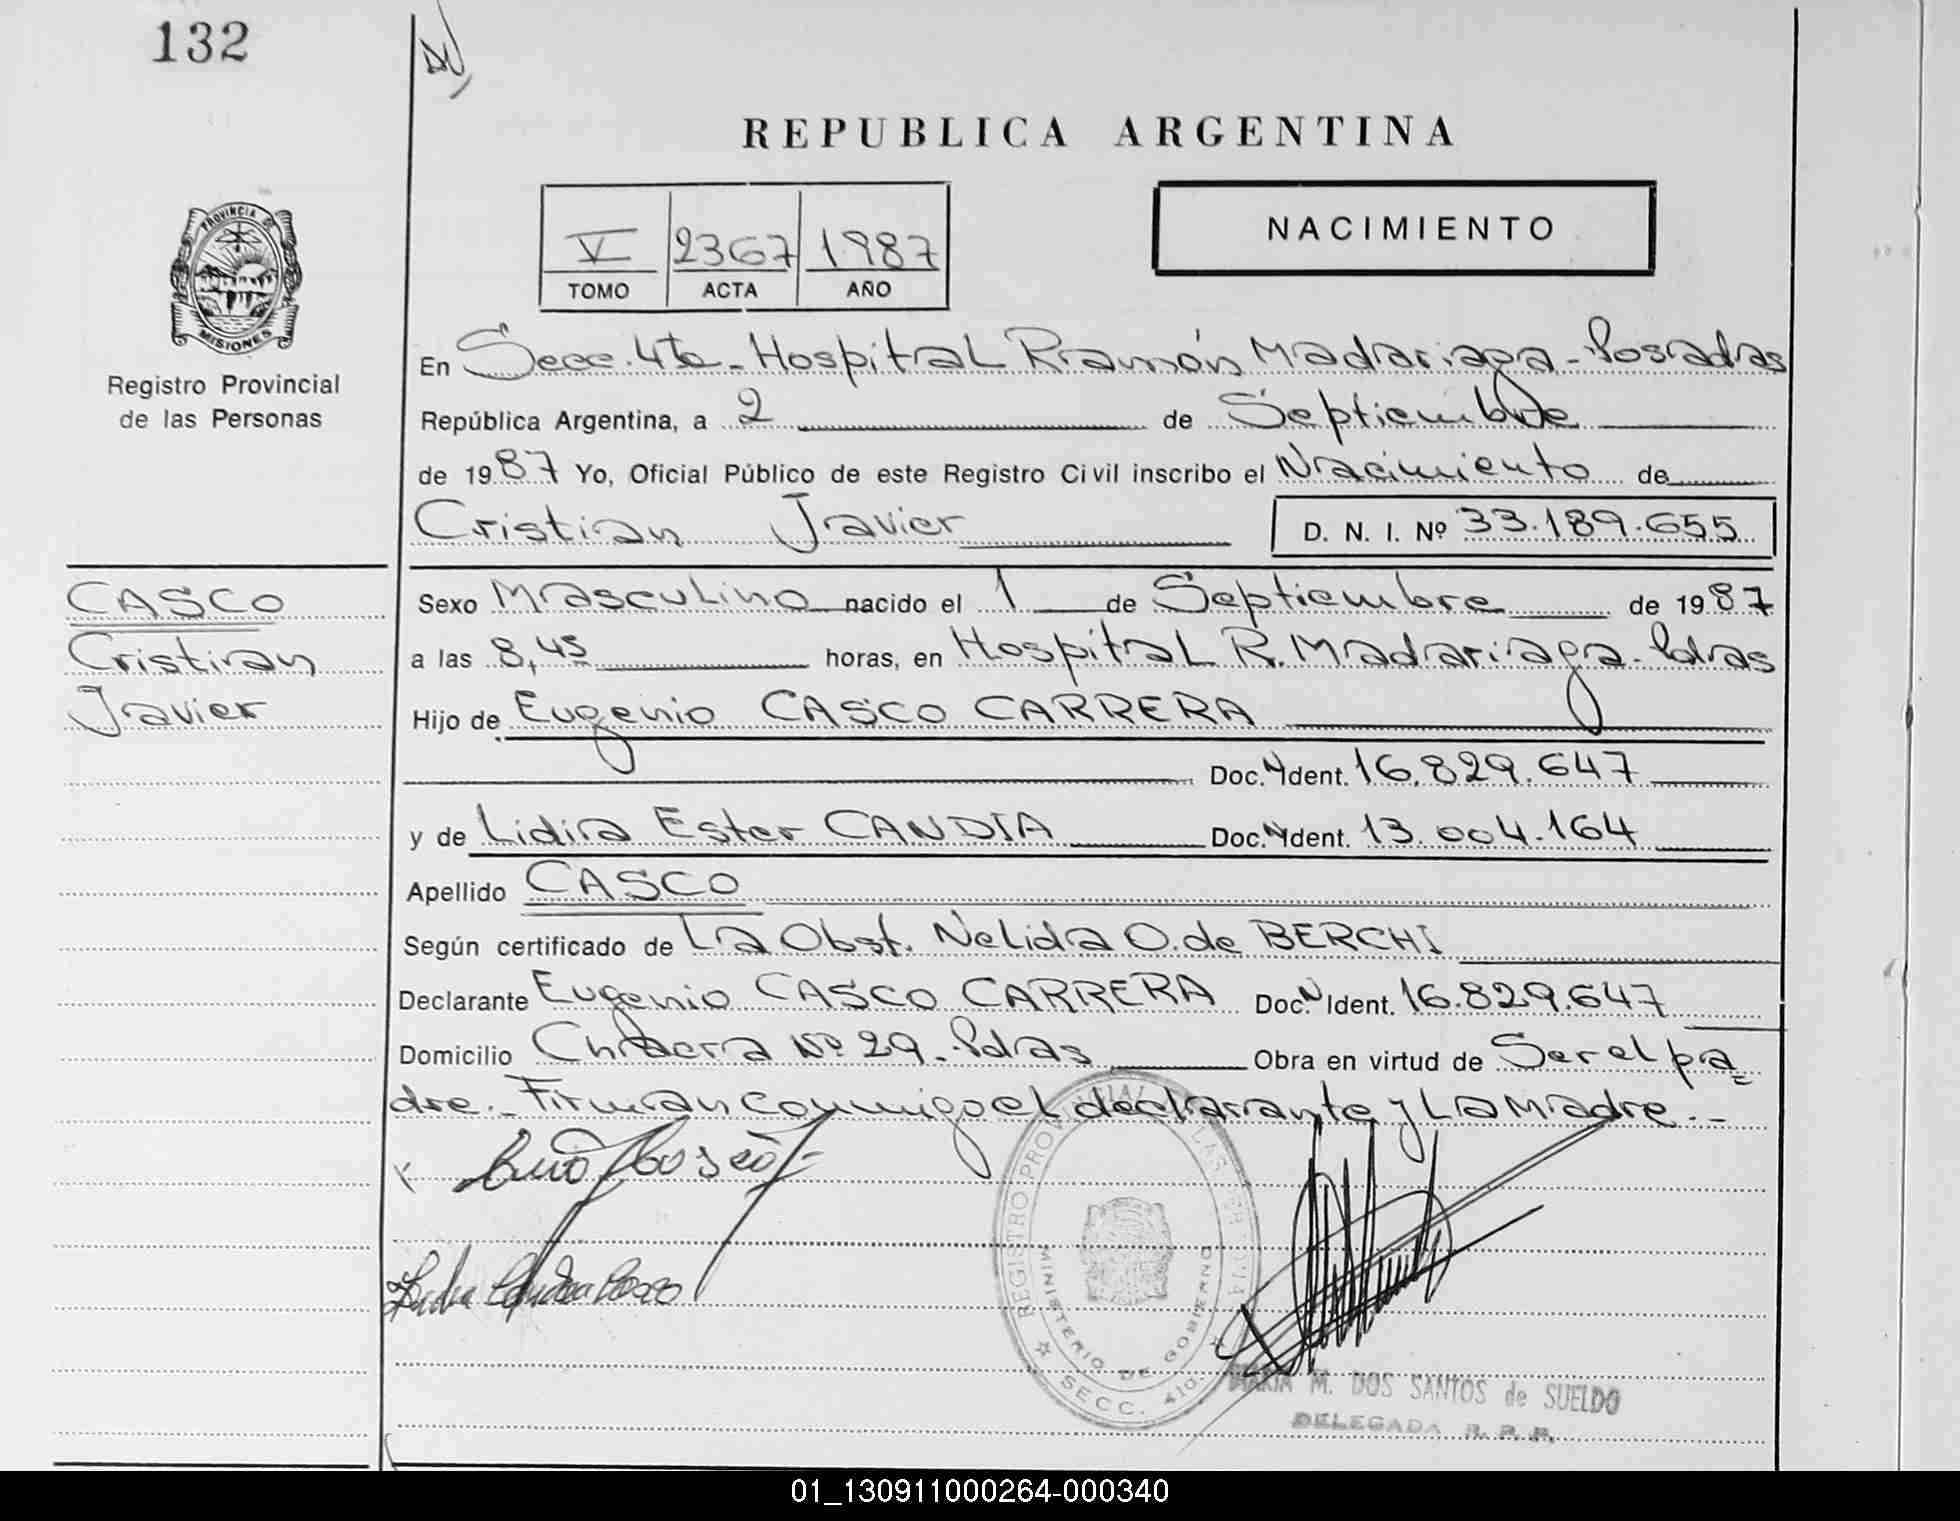 132
REPUBLICA ARGENTINA
V 2367 1987
TOMO ACTA AÑO
NACIMIENTO
PROVINCIA DE
MISIONES
Registro Provincial
de las Personas
En Secc. 4ta - Hospital Ramón Madariaga - Posadas
República Argentina, a 2 de Septiembre
de 1987 Yo, Oficial Público de este Registro Civil inscribo el Nacimiento de
Cristian Javier D. N. I. Nº 33.189.655
CASCO
Cristian
Javier
Sexo Masculino nacido el 1 de Septiembre de 1987
a las 8,45 horas, en Hospital R. Madariaga - Pdas
Hijo de Eugenio CASCO CARRERA
Doc. N Ident. 16.829.647
y de Lidia Ester CANDIA Doc. N Ident. 13.004.164
Apellido CASCO
Según certificado de La Obst. Nelida O. de BERCHI
Declarante Eugenio CASCO CARRERA Doc. N Ident. 16.829.647
Domicilio Chacra Nº 29 - Pdas Obra en virtud de Ser el pa=
dre.- Firman conmigo el declarante y La Madre.-
REGISTRO PROVINCIAL DE LAS PERSONAS
MINISTERIO DE GOBIERNO
SECC. 4ta.
MARIA M. DOS SANTOS de SUELDO
DELEGADA R. P. P.
01_130911000264-000340